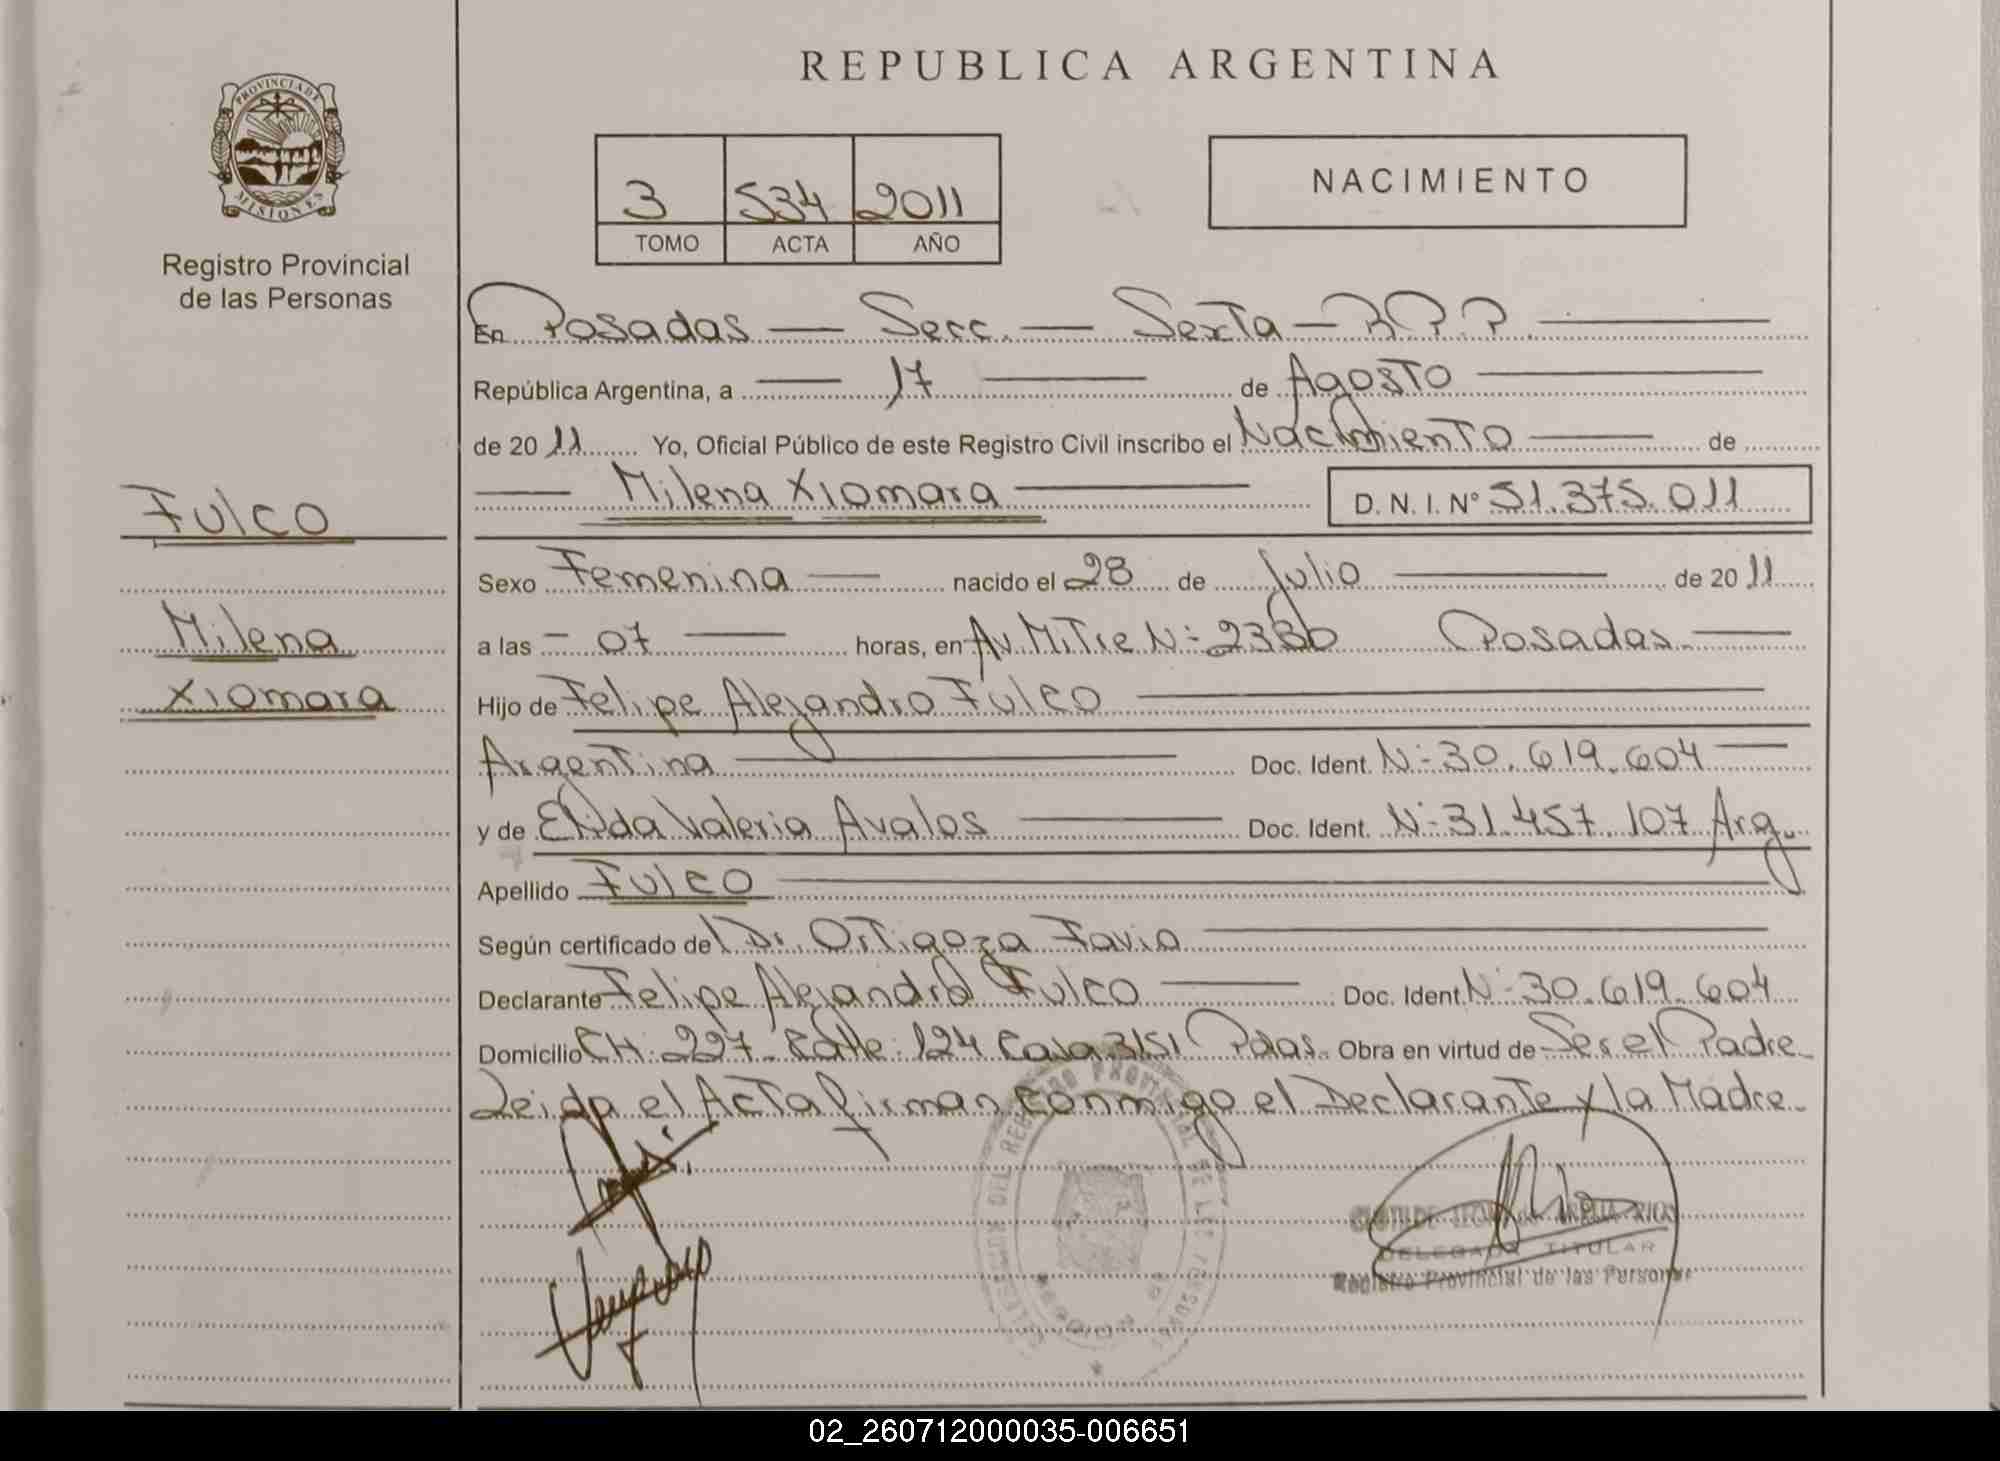 REPUBLICA ARGENTINA
PROVINCIA DE
MISIONES
Registro Provincial
de las Personas
3 534 2011
TOMO ACTA AÑO
NACIMIENTO
En Posadas — Secc. — Sexta — R.P.P. —
República Argentina, a — 17 — de Agosto —
de 2011 Yo, Oficial Público de este Registro Civil inscribo el Nacimiento — de
— Milena Xiomara — D. N. I. N° 51.375.011
Fulco
Milena
Xiomara
Sexo Femenina — nacido el 28 de Julio — de 2011
a las — 07 — horas, en Av. Mitre N: Posadas. —
Hijo de Felipe Alejandro Fulco —
Argentina — Doc. Ident. N: 30.619.604 —
y de Valeria Avalos — Doc. Ident. N: 31.457.107 Arg.
Apellido Fulco —
Según certificado del Dr. Ortigoza Favio —
Declarante Felipe Alejandro Fulco — Doc. Ident. N: 30.619.604
Domicilio CH: 227. Calle: 124 Casa 3151 Pdas. Obra en virtud de Ser el Padre
Leida el Acta firman conmigo el Declarante y la Madre.
REGISTRO PROVINCIAL DE LAS PERSONAS
DELEGADA TITULAR
Registro Provincial de las Personas
02_260712000035-006651